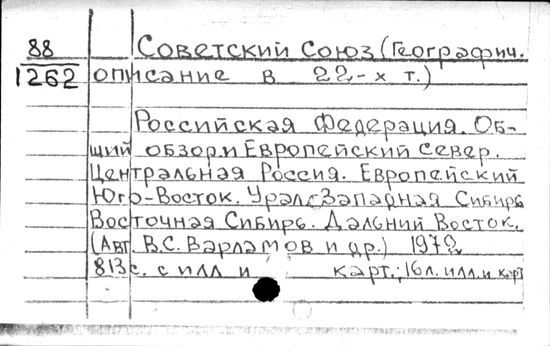 88 Советский Союз (Географич.
1262 описание в 22-х т.)
Российская Федерация. Об-
щий обзор и Европейский север.
Центральная Россия. Европейский
Юго-Восток. Урал. Западная Сибирь
Восточная Сибирь. Дальний Восток.
(Авт. В.С. Варламов и др.) 1972
813 с. с илл и карт.; 16 л. илл. и карт